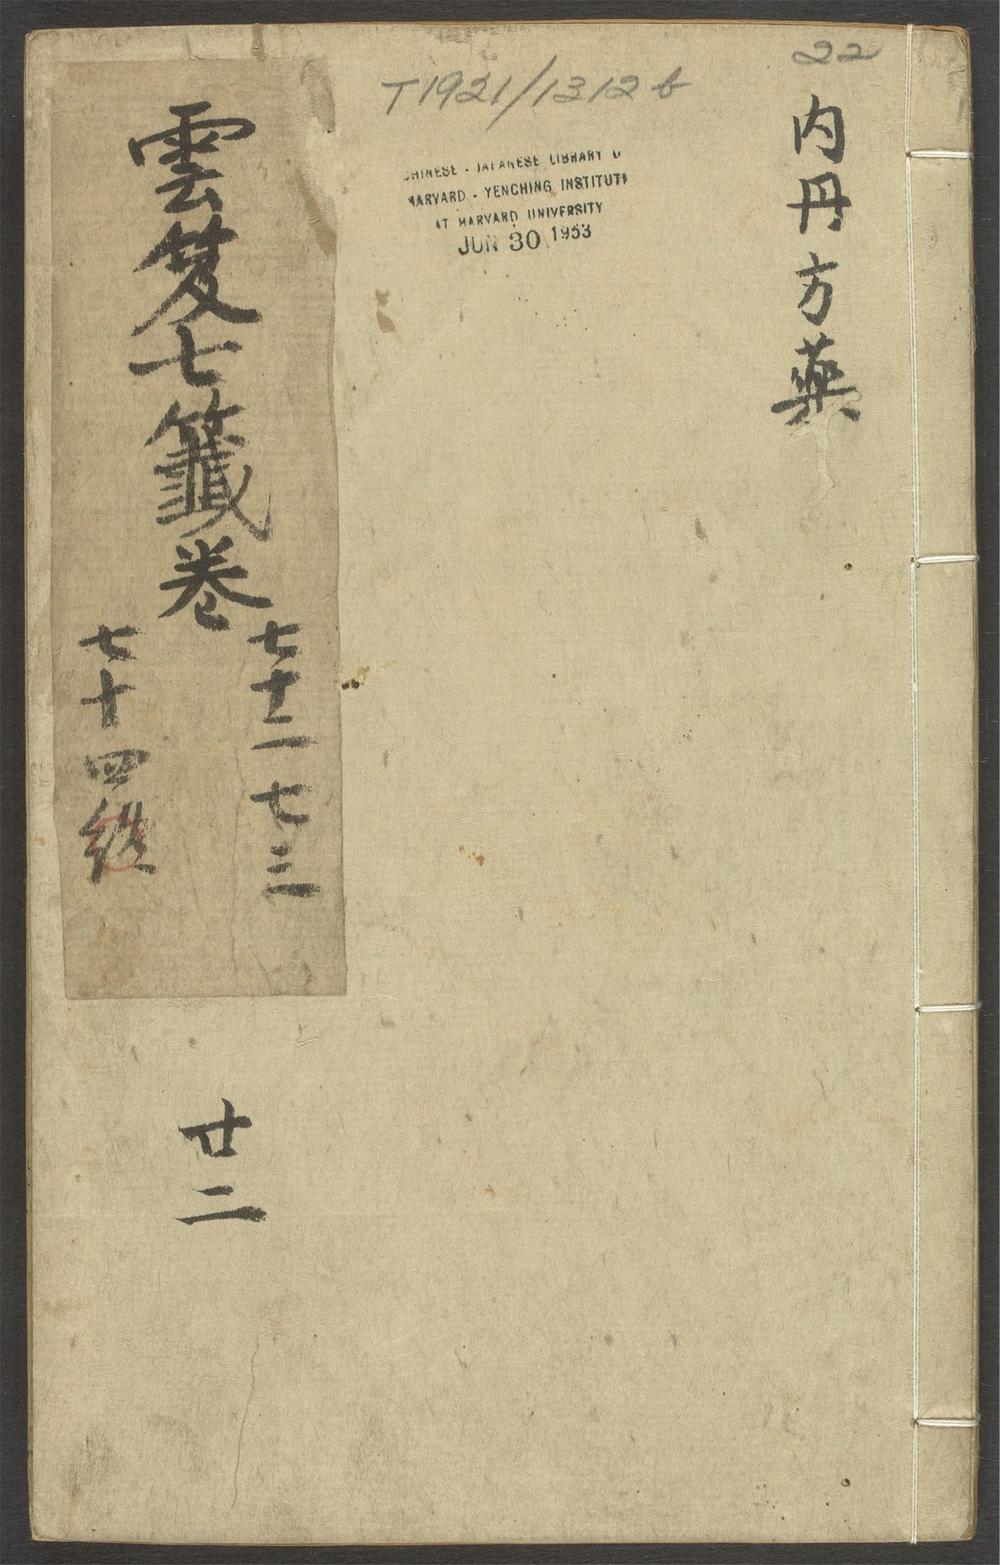 22
内丹方藥
T1921/1312b
CHINESE - JAPANESE LIBRARY O
HARVARD - YENCHING INSTITUTE
AT HARVARD UNIVERSITY
JUN 30 1953
雲笈七籤卷
七十二 七三
七十四
廿二